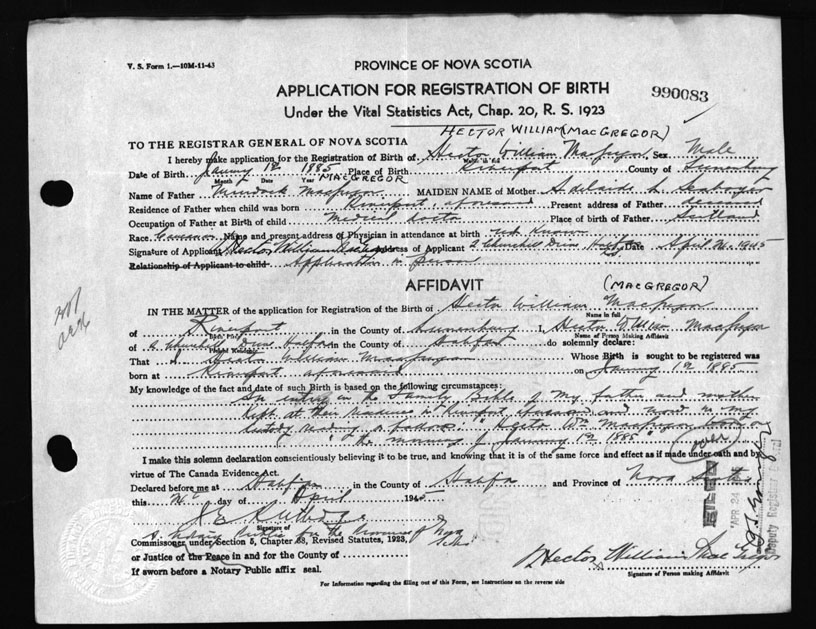 V. S. Form 1.—10M-11-43
PROVINCE OF NOVA SCOTIA
APPLICATION FOR REGISTRATION OF BIRTH
990083
Under the Vital Statistics Act, Chap. 20, R. S. 1923
HECTOR WILLIAM (MACGREGOR)
TO THE REGISTRAR GENERAL OF NOVA SCOTIA
I hereby make application for the Registration of Birth of Hector William MacGregor Sex Male
Name in full
Date of Birth January 1st 1885 Place of Birth Riverport County of Lunenburg
Month Date Year MACGREGOR
Name of Father Murdock MacGregor MAIDEN NAME of Mother Adelaide
Residence of Father when child was born Riverport aforesaid Present address of Father deceased
Occupation of Father at Birth of child Medical Doctor Place of birth of Father Scotland
Race Name and present address of Physician in attendance at birth not known
Signature of Applicant Hector William MacGregor Address of Applicant 2 Churchill Drive Halifax Date April 1945
Relationship of Applicant to child Application in person
AFFIDAVIT
(MACGREGOR)
IN THE MATTER of the application for Registration of the Birth of Hector William MacGregor
Name in full
of Riverport in the County of Lunenburg I, Hector William MacGregor
Birth Place Name of Person Making Affidavit
of 2 Churchill Drive Halifax in the County of Halifax do solemnly declare:
Present Residence
That I Hector William MacGregor Whose Birth is sought to be registered was
born at Riverport aforesaid on January 1st 1885
My knowledge of the fact and date of such Birth is based on the following circumstances:
An entry in the Family Bible of my father and mother
kept at their residence in Riverport aforesaid and now in my
custody reading as follows: "Hector Wm MacGregor born on
the morning of January 1st 1885"
I make this solemn declaration conscientiously believing it to be true, and knowing that it is of the same force and effect as if made under oath and by
virtue of The Canada Evidence Act.
Declared before me at Halifax in the County of Halifax and Province of Nova Scotia
this day of April 1945
Signature of
A Notary Public for the Province of Nova Scotia
Commissioner under Section 5, Chapter 38, Revised Statutes, 1923,
or Justice of the Peace in and for the County of
If sworn before a Notary Public affix seal.
Hector William MacGregor
Signature of Person making Affidavit
For Information regarding the filling out of this Form, see Instructions on the reverse side
FILED
APR 24
Deputy Registrar